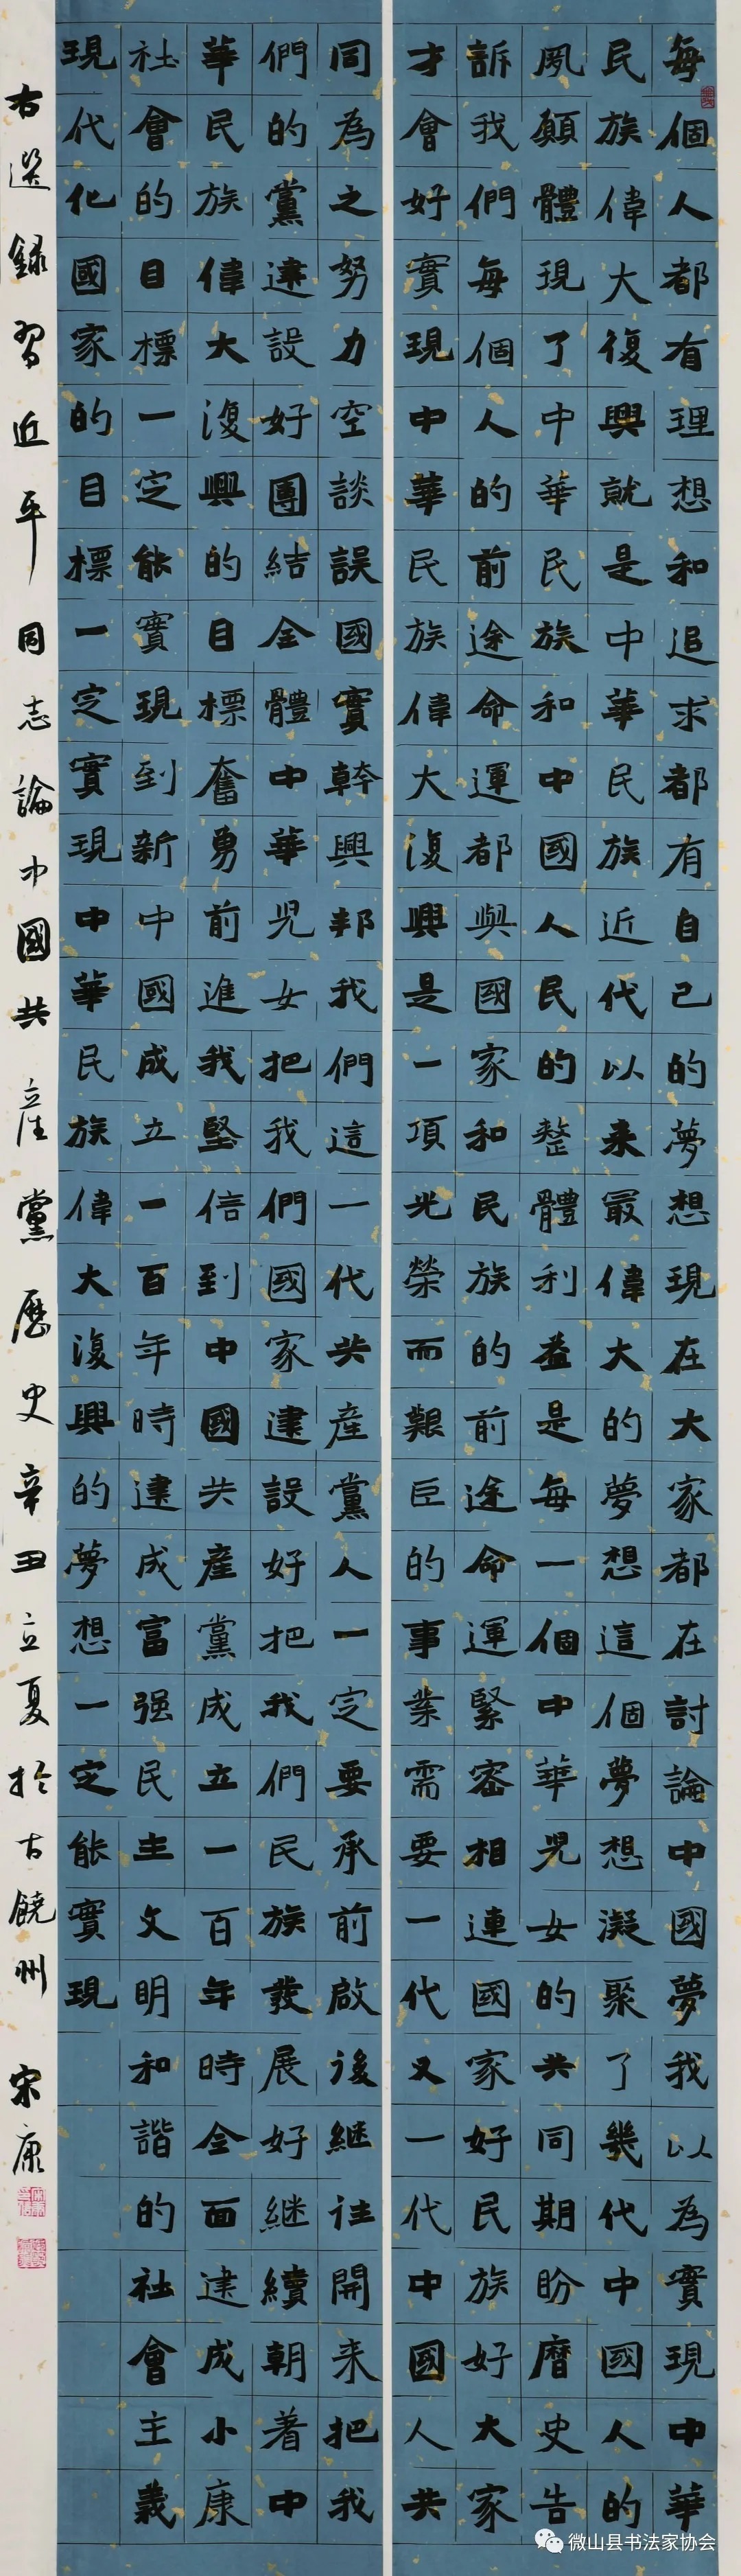 每個人都有理想和追求都有自己的夢想現在大家都在討論中國夢我以為實現中華
民族偉大復興就是中華民族近代以来最偉大的夢想這個夢想凝聚了幾代中國人的
夙願體現了中華民族和中國人民的整體利益是每一個中華兒女的共同期盼曆史告
訴我們每個人的前途命運都與國家和民族的前途命運緊密相連國家好民族好大家
才會好實現中華民族偉大復興是一項光榮而艱巨的事業需要一代又一代中國人共
同為之努力空談誤國實幹興邦我們這一代共産黨人一定要承前啟後継往開来把我
們的黨建設好團結全體中華兒女把我們國家建設好把我們民族發展好継續朝着中
華民族偉大復興的目標奮勇前進我堅信到中國共産黨成立一百年時全面建成小康
社會的目標一定能實現到新中國成立一百年時建成富强民主文明和諧的社會主義
現代化國家的目標一定實現中華民族偉大復興的夢想一定能實現
右選録習近平同志論中國共産黨歷史辛丑立夏於古饒州 宋康
微山县书法家协会